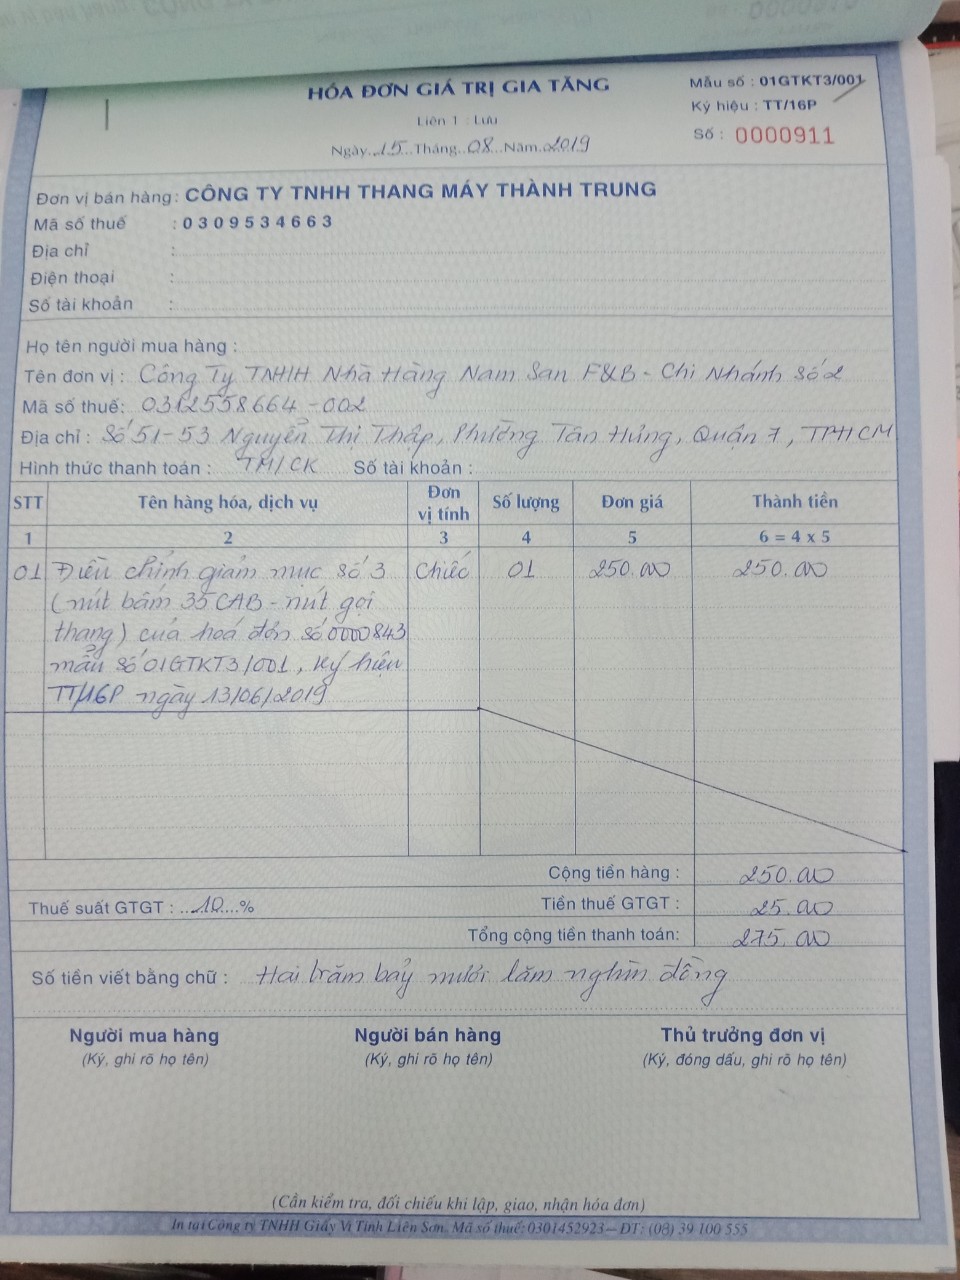 HÓA ĐƠN GIÁ TRỊ GIA TĂNG
Mẫu số : 01GTKT3/001
Liên 1 : Lưu
Ký hiệu : TT/16P
Ngày 15 Tháng 08 Năm 2019
Số : 0000911
Đơn vị bán hàng : CÔNG TY TNHH THANG MÁY THÀNH TRUNG
Mã số thuế : 0309534663
Địa chỉ :
Điện thoại :
Số tài khoản :
Họ tên người mua hàng :
Tên đơn vị : Công Ty TNHH Nhà Hàng Nam San F&B - Chi Nhánh Số 2
Mã số thuế: 0312558664-002
Địa chỉ : Số 51-53 Nguyễn Thị Thập, Phường Tân Hưng, Quận 7, TPHCM
Hình thức thanh toán : TM/CK Số tài khoản :
STT Tên hàng hóa, dịch vụ Đơn vị tính Số lượng Đơn giá Thành tiền
1 2 3 4 5 6 = 4 x 5
01 Điều chỉnh giảm mục số 3 Chiếc 01 250.000 250.000
(nút bấm 35 CAB - nút gọi
thang) của hoá đơn số 0000843
mẫu số 01GTKT3/001, ký hiệu
TT/16P ngày 13/06/2019
Cộng tiền hàng : 250.000
Thuế suất GTGT : 10 % Tiền thuế GTGT : 25.000
Tổng cộng tiền thanh toán: 275.000
Số tiền viết bằng chữ : Hai trăm bảy mươi lăm nghìn đồng
Người mua hàng Người bán hàng Thủ trưởng đơn vị
(Ký, ghi rõ họ tên) (Ký, ghi rõ họ tên) (Ký, đóng dấu, ghi rõ họ tên)
(Cần kiểm tra, đối chiếu khi lập, giao, nhận hóa đơn)
In tại Công ty TNHH Giấy Vi Tính Liên Sơn. Mã số thuế: 0301452923 – ĐT: (08) 39 100 555